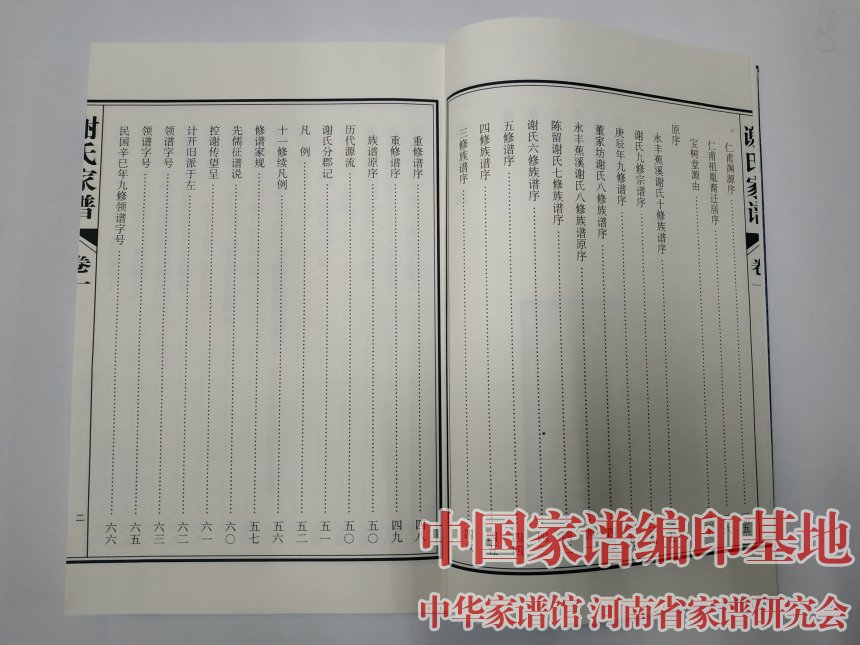 谢氏家谱
卷一
仁甫渊源序
仁甫祖胤裔迁居序
宝树堂源由
原序
永丰蕉溪谢氏十修族谱序
谢氏九修宗谱序
庚辰年九修谱序
董家坊谢氏八修族谱序
永丰蕉溪谢氏八修族谱原序
陈留谢氏七修族谱序
谢氏六修族谱序
五修族谱序
四修族谱序
三修族谱序
重修谱序 四八
重修谱序 四九
族谱原序 五〇
历代源流 五〇
谢氏分郡记 五一
凡例 五二
十一修续凡例 五六
修谱家规 五七
先儒征谱说 六〇
控谢传望呈 六一
计开旧派于左 六二
领谱字号 六三
领谱字号 六五
民国辛巳年九修领谱字号 六六
谢氏家谱
卷一
二
中国家谱编印基地
中华家谱馆 河南省家谱研究会